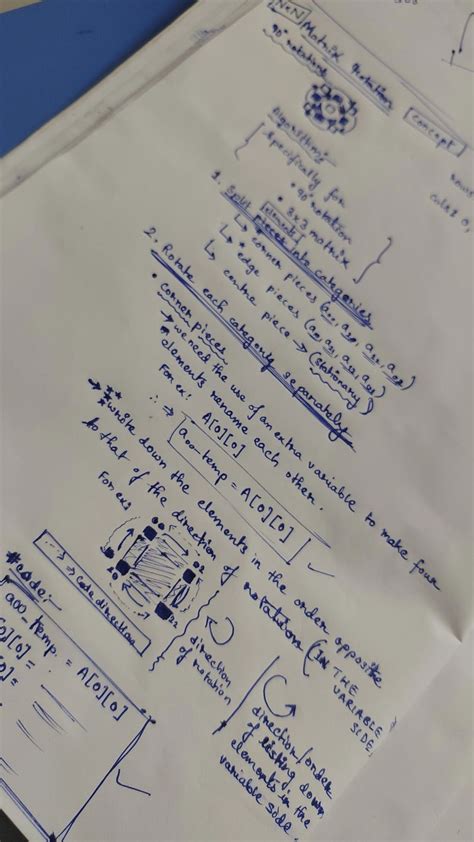 N×N Matrix Rotation
90° rotations
concept
Algorithm:-
Specifically for
• 90° rotation
• 3x3 matrix
1. Split pieces into categories
elements
↳ corner pieces
↳ edge pieces
↳ centre piece → (stationary)
2. Rotate each category separately
• corner pieces
→ we need the use of an extra variable to make four
elements rename each other.
For ex:
A[0][0]
∴ ⇒ a00-temp = A[0][0]
→ ** write down the elements in the order opposite
to that of the direction of rotation (IN THE
VARIABLE
SIDE
For ex:
direction
of rotation
direction/order
of listing down
elements in the
variable side.
⇒ code direction
#code:-
a00_temp = A[0][0]
[0][0] =
[0] =